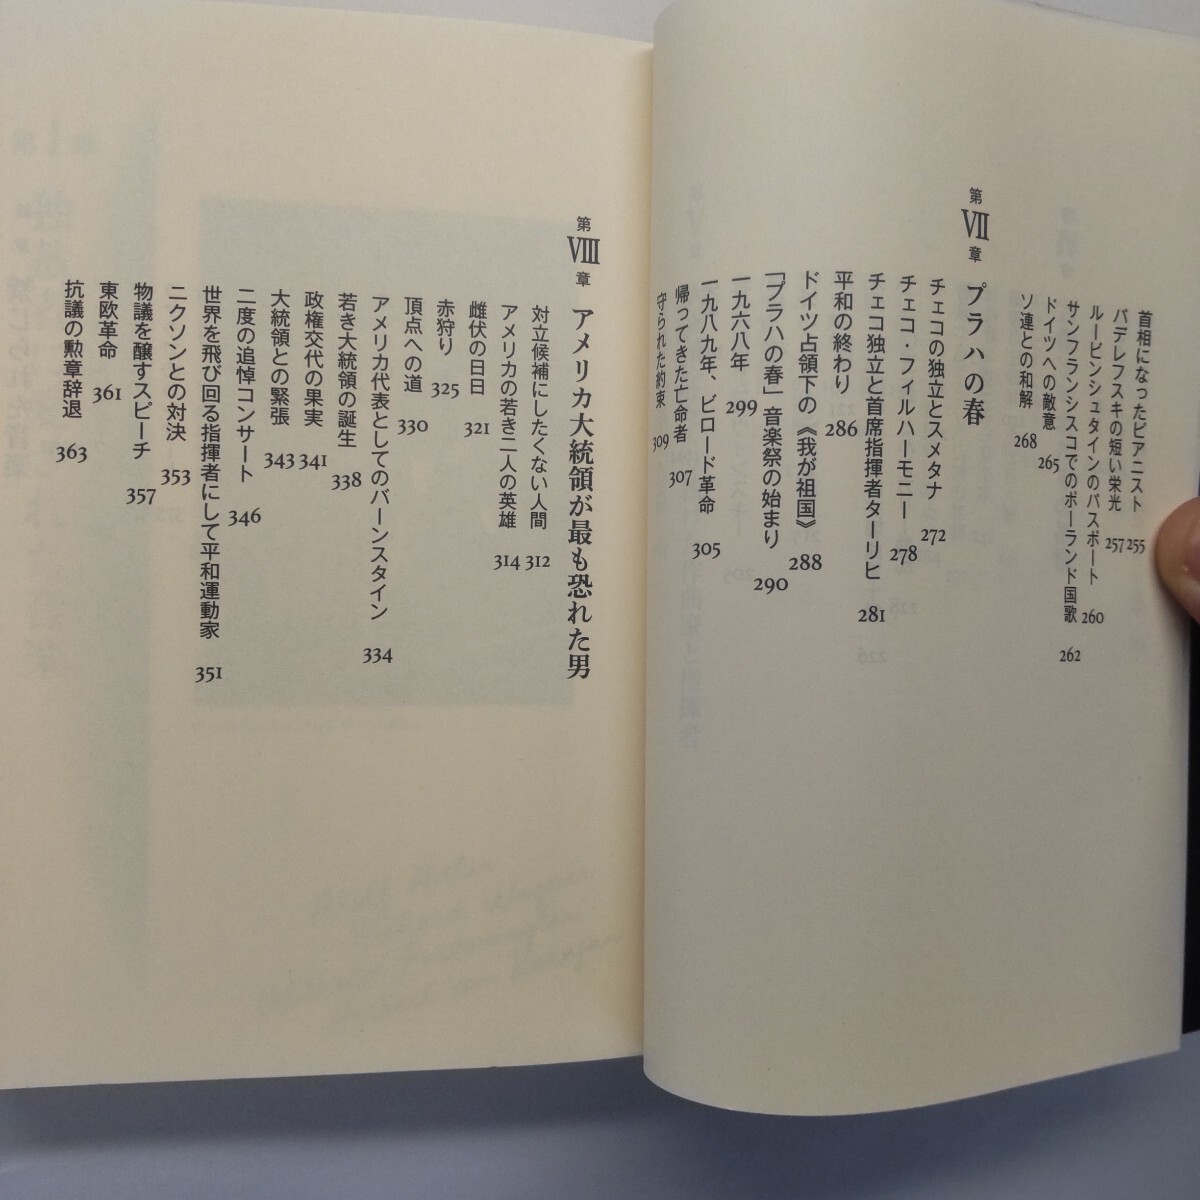 首相になったピアニスト 255
パデレフスキの短い栄光 257
ルービンシュタインのパスポート 260
サンフランシスコでのポーランド国歌 262
ドイツへの敵意 265
ソ連との和解 268
第VII章 プラハの春
チェコの独立とスメタナ 272
チェコ・フィルハーモニー 278
チェコ独立と首席指揮者ターリヒ 281
平和の終わり 286
ドイツ占領下の《我が祖国》 288
「プラハの春」音楽祭の始まり 290
一九六八年 299
一九八九年、ビロード革命 305
帰ってきた亡命者 307
守られた約束 309
第VIII章 アメリカ大統領が最も恐れた男
対立候補にしたくない人間 312
アメリカの若き二人の英雄 314
雌伏の日日 321
赤狩り 325
頂点への道 330
アメリカ代表としてのバーンスタイン 334
若き大統領の誕生 338
政権交代の果実 341
大統領との緊張 343
二度の追悼コンサート 346
世界を飛び回る指揮者にして平和運動家 351
ニクソンとの対決 353
物議を醸すスピーチ 357
東欧革命 361
抗議の勲章辞退 363